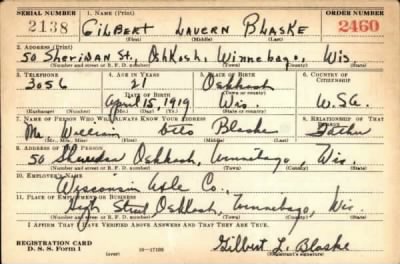 SERIAL NUMBER 1. NAME (Print) ORDER NUMBER
2138 GILBERT LAVERN BLASKE 2460
(First) (Middle) (Last)
2. ADDRESS (Print)
50 SHERIDAN St., OshKosh, Winnebago, Wis
(Number and street or R. F. D. number) (Town) (County) (State)
3. TELEPHONE 4. AGE IN YEARS 5. PLACE OF BIRTH 6. COUNTRY OF CITIZENSHIP
3056 21 Oshkosh
DATE OF BIRTH (Town or county)
April 15, 1919 Wis. U.S.A.
(Exchange) (Number) (Mo.) (Day) (Yr.) (State or country)
7. NAME OF PERSON WHO WILL ALWAYS KNOW YOUR ADDRESS 8. RELATIONSHIP OF THAT PERSON
Mr. William Otto Blaske Father
(Mr., Mrs., Miss) (First) (Middle) (Last)
9. ADDRESS OF THAT PERSON
50 Sheridan Oshkosh, Winnebago, Wis.
(Number and street or R. F. D. number) (Town) (County) (State)
10. EMPLOYER'S NAME
Wisconsin Axle Co.,
11. PLACE OF EMPLOYMENT OR BUSINESS
High Street Oshkosh, Winnebago, Wis.
(Number and street or R. F. D. number) (Town) (County) (State)
I AFFIRM THAT I HAVE VERIFIED ABOVE ANSWERS AND THAT THEY ARE TRUE.
REGISTRATION CARD
D. S. S. Form 1 (over) Gilbert L. Blaske
(Registrant's signature)